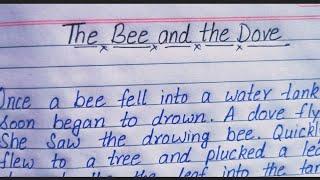 The Bee and the Dove
Once a bee fell into a water tank
soon began to drown. A dove fly
She saw the drowing bee. Quickl
flew to a tree and plucked a lea
the leaf into the tan